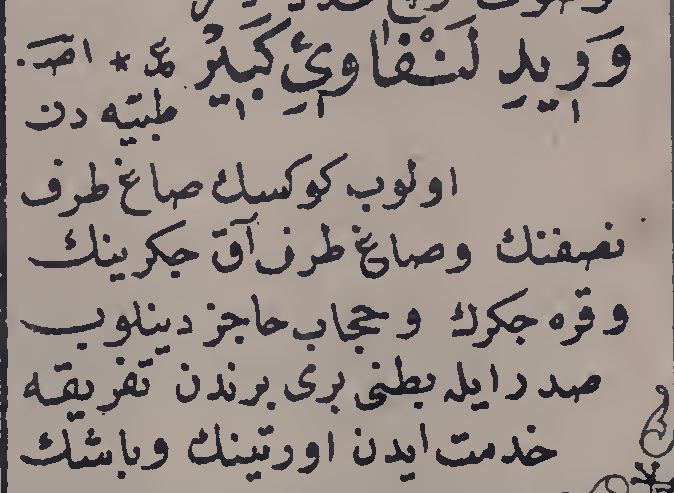 وَرِيدِ لَنْفَاوِئِ كَبِيرْ عر * اصـ.
طبیه دن
اولوب كوكسك صاغ طرف
نصفنك وصاغ طرف آق جكرينك
وقره جكرك وحجاب حاجز دينلوب
صدر ايله بطنى برى برندن تفريقه
خدمت ايدن اورتينك وباشك